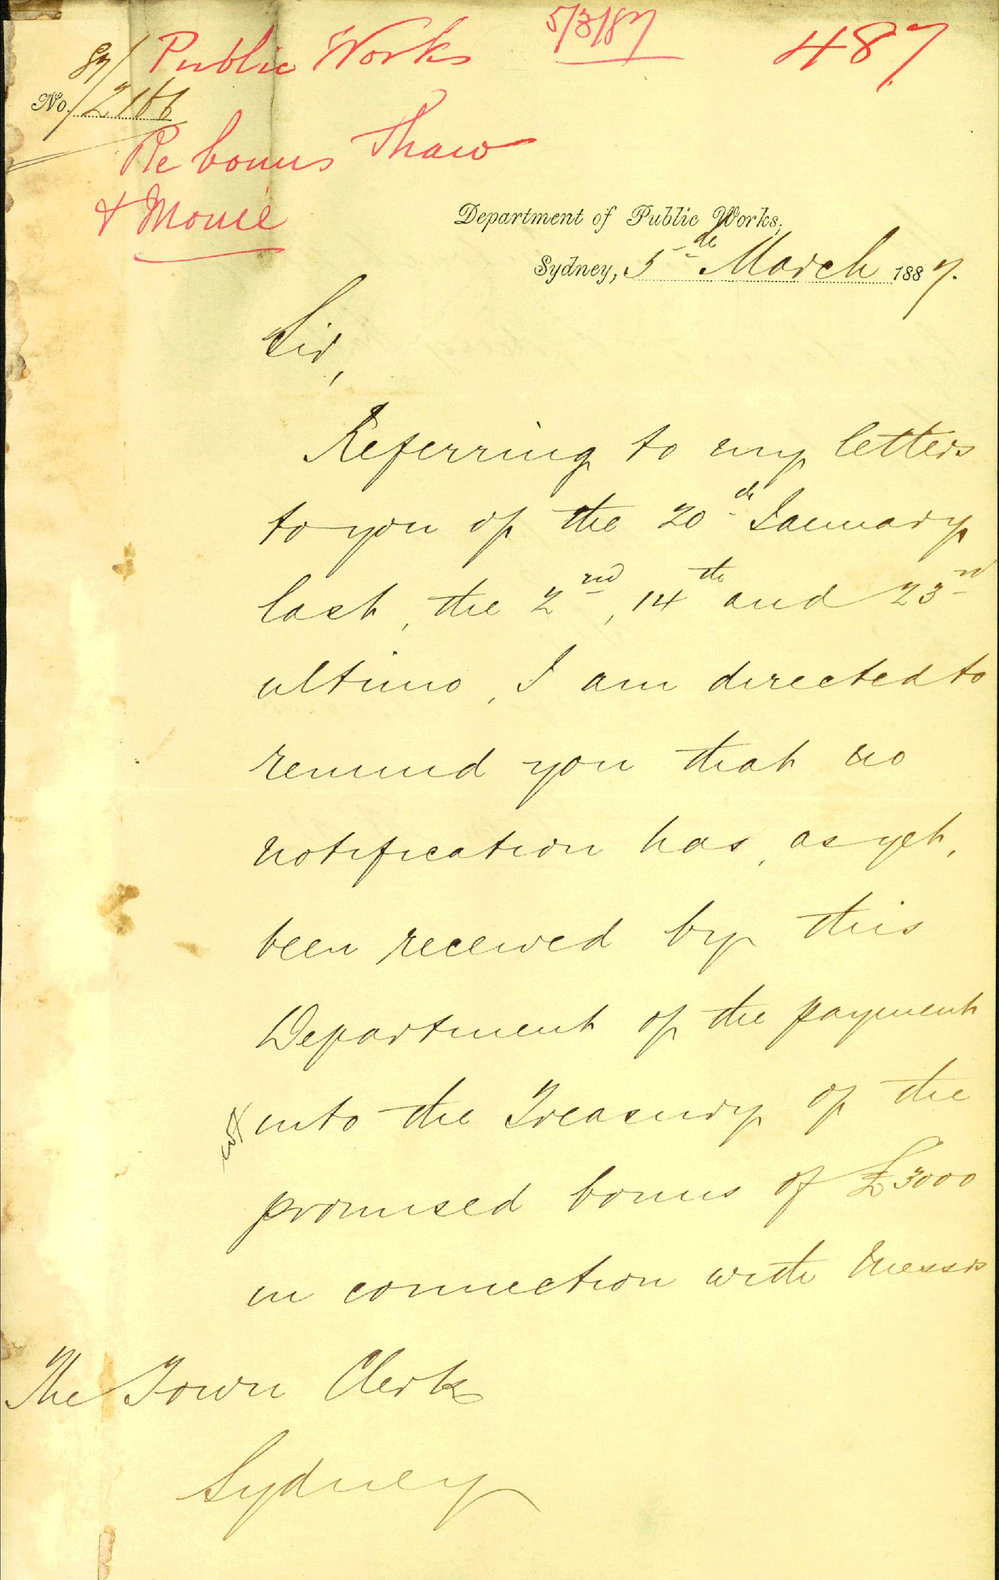 Public Works
5/3/87
487
No. 87/2166
Re bonus Shaw
& Moule
Department of Public Works,
Sydney, 5th March 1887.
Sir,
Referring to my letters
to you of the 20th January
last, the 2nd, 14th and 23rd
ultimo, I am directed to
remind you that no
notification has, as yet,
been received by this
Department of the payment
into the Treasury of the
promised bonus of £3000
in connection with Messrs
The Town Clerk
Sydney